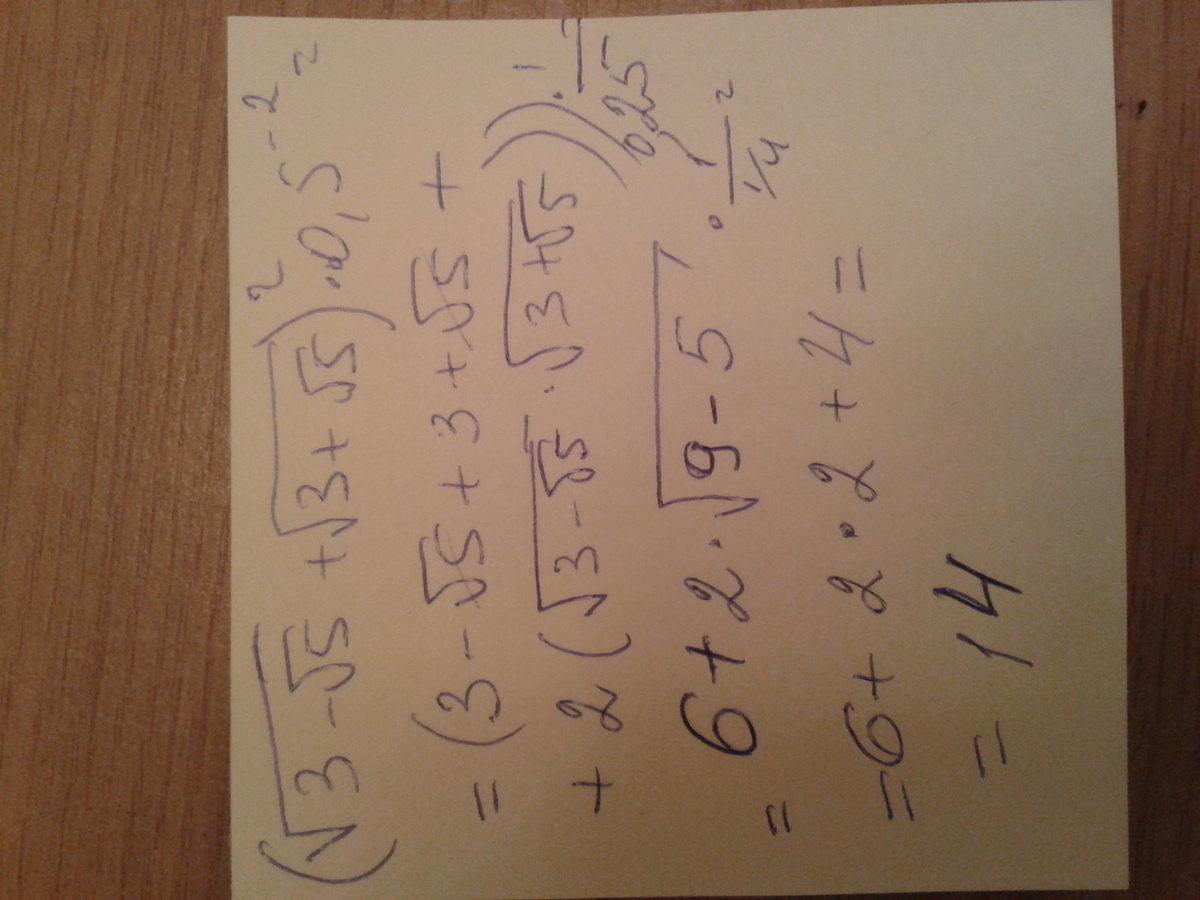 (√(3-√5) + √(3+√5))² · 0,5⁻² =
= (3-√5 + 3 + √5 +
+ 2(√(3-√5) · √(3+√5))) · 1/0,25 =
= 6 + 2 · √(9-5) · 1/(1/4) =
= 6 + 2 · 2 + 4 =
= 14